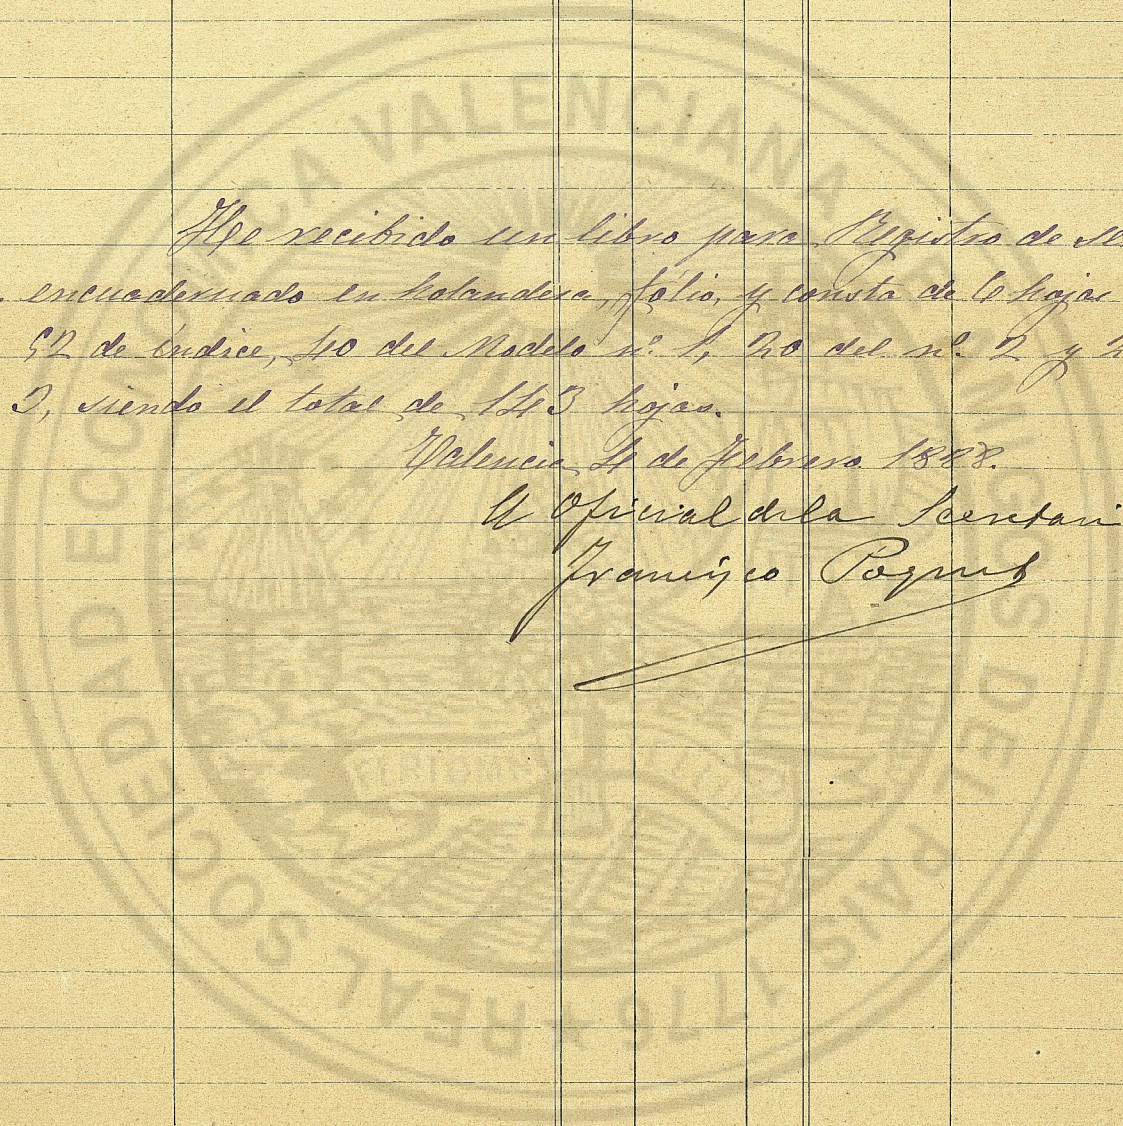 He recibido un libro para Registro de
encuadernado en holandesa, fólio, y consta de 6 hojas
52 de índice, 40 del Modelo nº. 1, 20 del nº. 2 y 2
3, siendo el total de 143 hojas.
Valencia 4 de Febrero 1888.
El Oficial de la Secretari
Francisco
REAL SOCIEDAD ECONOMICA VALENCIANA DE AMIGOS DEL PAIS 1776